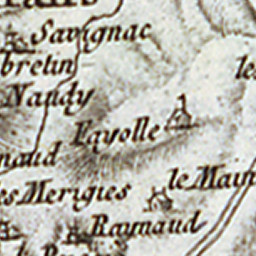 Savignac
bretin
Naudy
Fayolle
naud
es Merigies
le Main
Raynaud